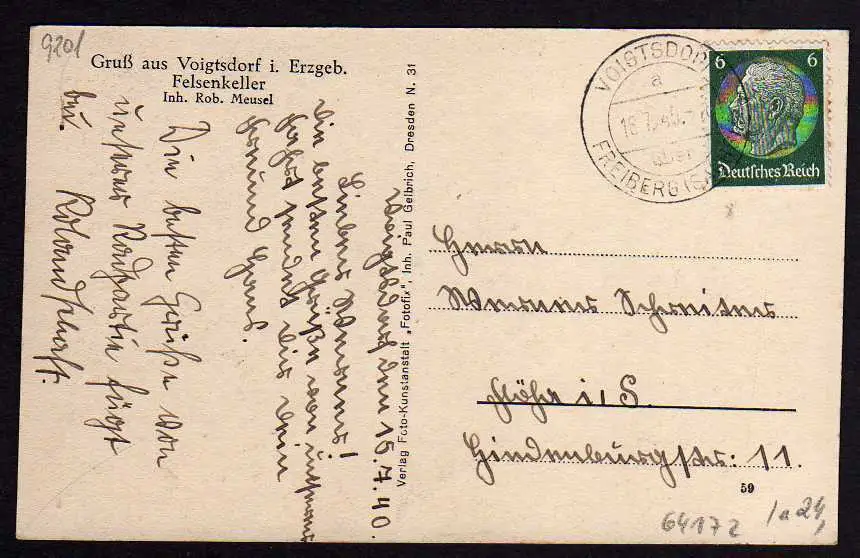 9201
Gruß aus Voigtsdorf i. Erzgeb.
Felsenkeller
Inh. Rob. Meusel
Voigtsdorf, den 15.7.40.
Lieber Werner!
Die besten Grüße von unserer
Fahrt sendet dir dein
Freund Hans.
Die besten Grüße von
unserer Radpartie fügt
bei.
Roland
Verlag Foto-Kunstanstalt „Fotofix", Inh. Paul Gelbrich, Dresden N. 31
VOIGTSDORF
a
18.7.40
über
FREIBERG (SA
6 6
Deutsches Reich
Herrn
Werner Schreiter
Flöha i. S.
Hindenburgstr: 11.
59
64172
1a24,